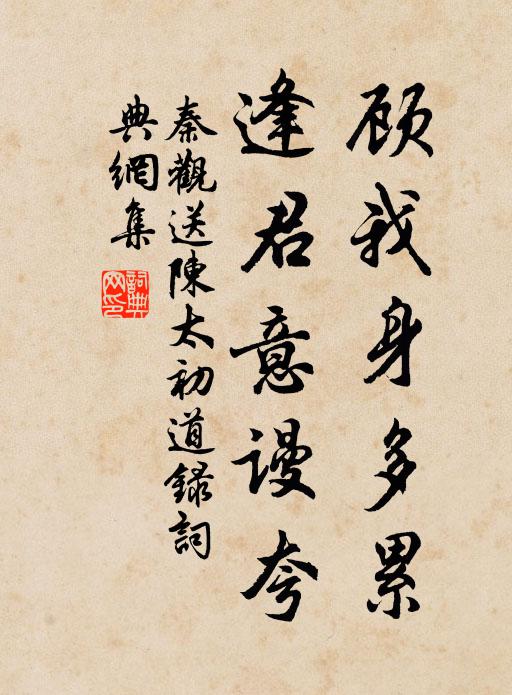 顾我身多累
逢君意谩夸
秦觀送陳太初道錄詞
典網集
詞典网印